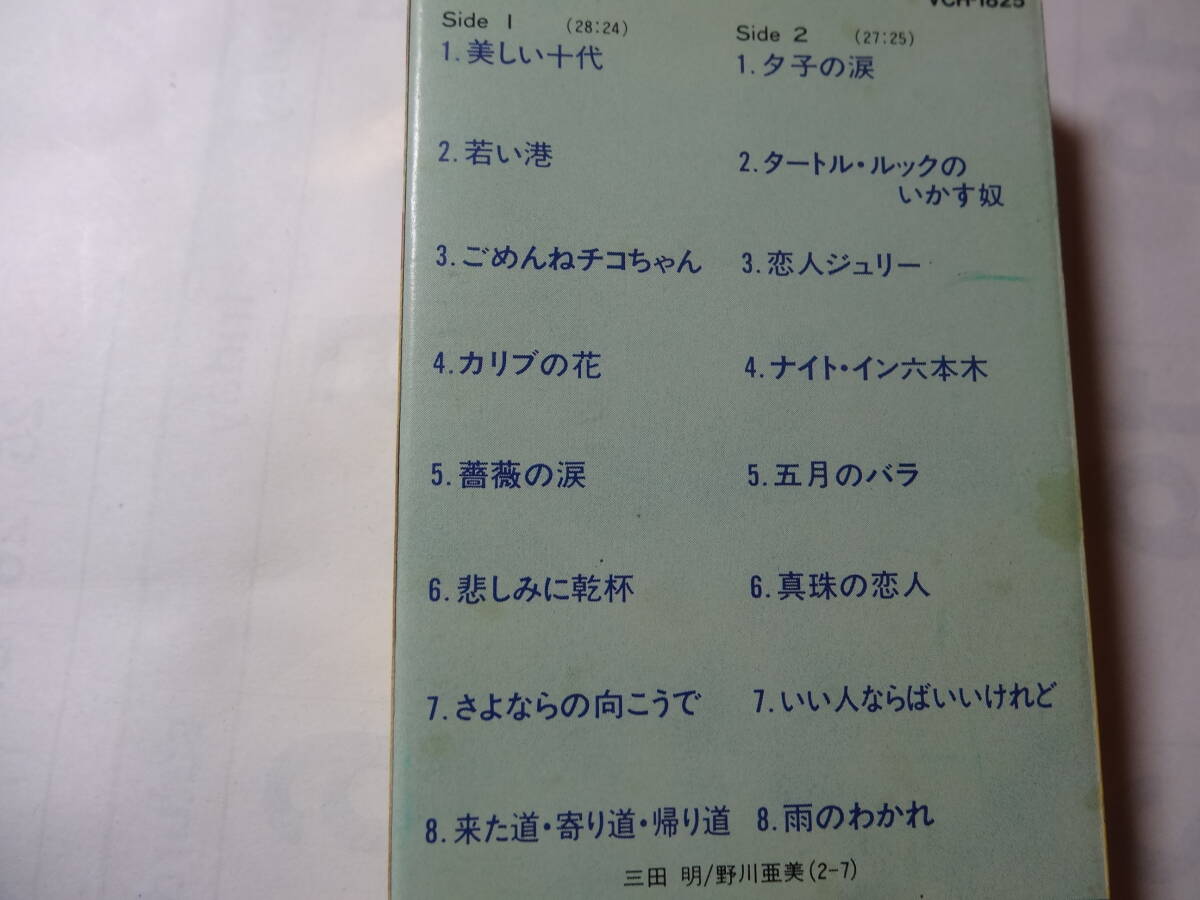 VCH-1825
Side 1 (28:24)
1.美しい十代
2.若い港
3.ごめんねチコちゃん
4.カリブの花
5.薔薇の涙
6.悲しみに乾杯
7.さよならの向こうで
8.来た道・寄り道・帰り道
Side 2 (27:25)
1.夕子の涙
2.タートル・ルックの
いかす奴
3.恋人ジュリー
4.ナイト・イン六本木
5.五月のバラ
6.真珠の恋人
7.いい人ならばいいけれど
8.雨のわかれ
三田 明/野川亜美(2-7)